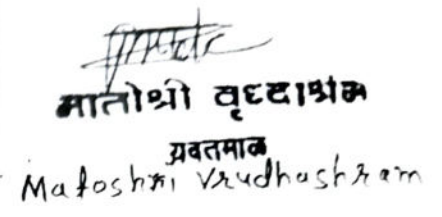 मातोश्री वृध्दाश्रम
यवतमाळ
Matoshri Vrudhashram